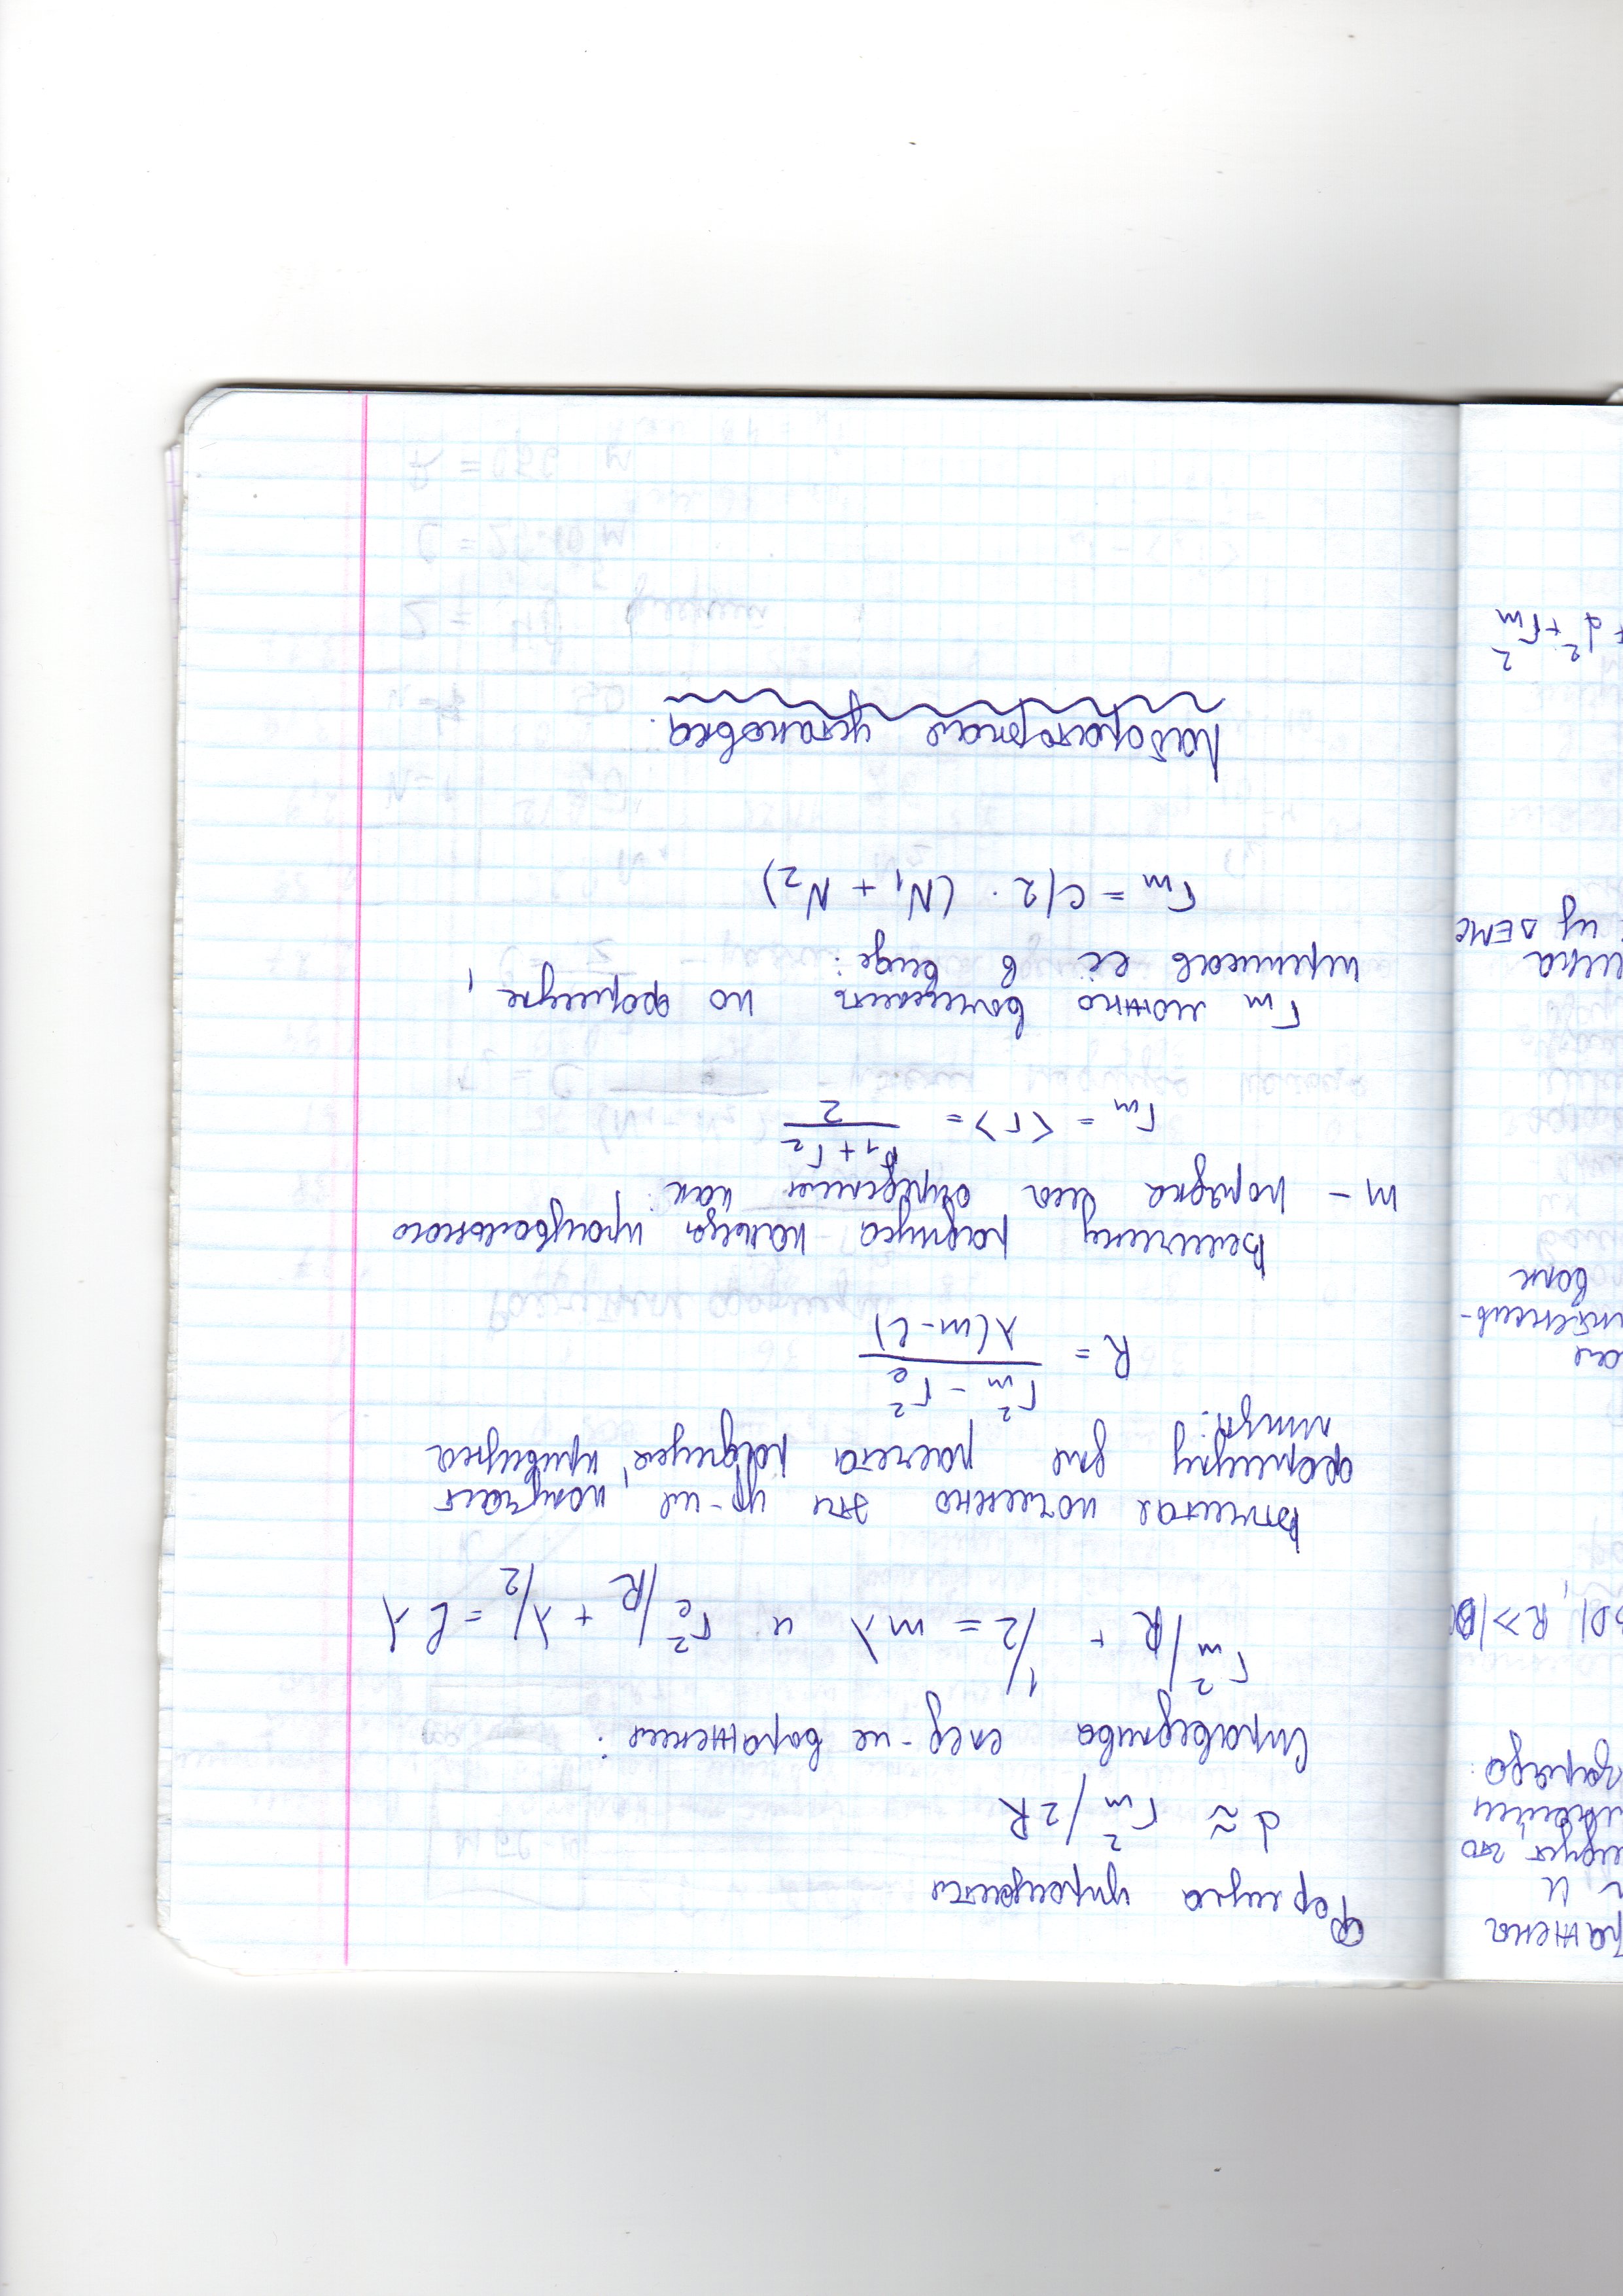 ражены
и
идует, что
заряда:
BD|, R≫|BC
ая
интенсив-
волн
из ΔEMC
+ d² + rₘ²
Формула упрощается
d ≈ rₘ²/2R
Справедлива след-ие выражения:
rₘ²/R + 1/2 = mλ и rₑ²/R + λ/2 = lλ
Вычитая почленно эти ур-ия, получаем
формулу для расчета радиуса кривизны
линзы:
R = (rₘ² − rₑ²) / λ(m−l)
Величину радиуса кольца произвольного
m – порядка мы определим как:
rₘ = <r> = (r₁ + r₂) / 2
rₘ можно вычислить по формуле,
переписав её в виде:
rₘ = c/2 · (N₁ + N₂)
Лабораторная установка.